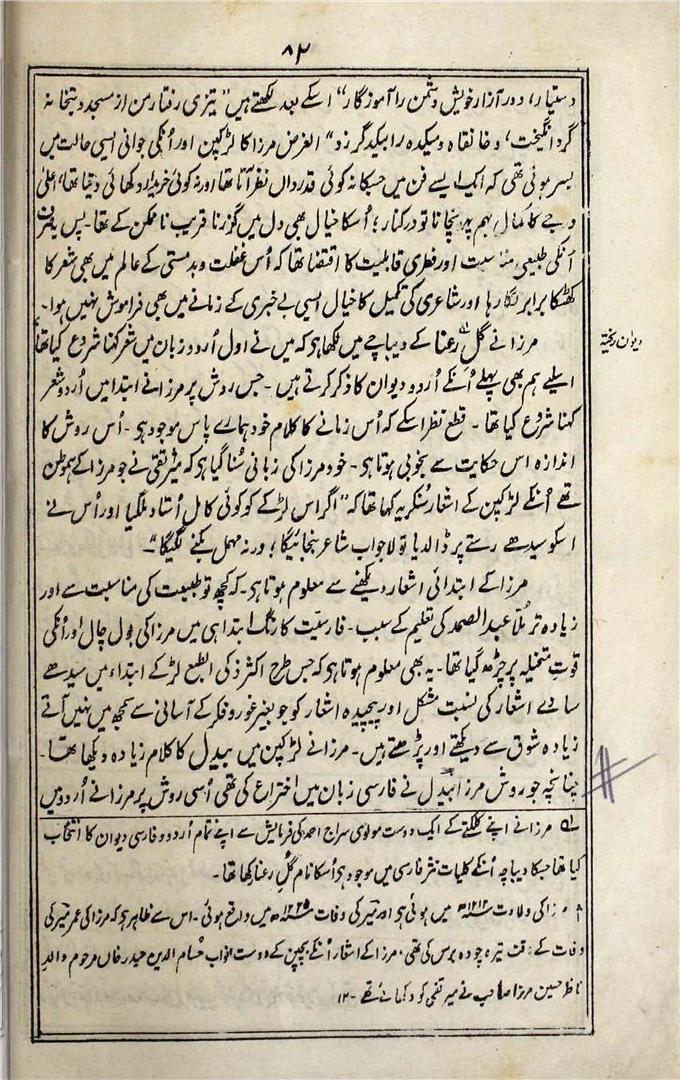 ۸۲
دستیار، دور آزار خویش دشمن را آموزگار" اسکے بعد لکھتے ہیں "تیزی رفتار من از مسجد و بتخانہ
گرد انگیخت، و خانقاہ و میکدہ را بیکدگر زد" الغرض مرزا کا لڑکپن اور اُنکی جوانی ایسی حالت میں
بسر ہوئی تھی کہ ایک ایسے فن میں جسکا نہ کوئی قدرداں نظر آتا تھا اور نہ کوئی خریدار دکھائی دیتا تھا، اعلیٰ
درجے کا کمال بہم پہنچانا تو درکنار؛ اُسکا خیال بھی دل میں گزرنا قریب ناممکن کے تھا۔ پس یہ صرف
اُنکی طبیعی مناسبت اور فطری قابلیت کا اقتضا تھا کہ اُس غفلت و بدمستی کے عالم میں بھی شعر کا
کھٹکا برابر لگا رہا اور شاعری کی تکمیل کا خیال ایسی بے خبری کے زمانے میں بھی فراموش نہیں ہوا۔
مرزا نے گل رعنا کے دیباچے میں لکھا ہو کہ میں نے اول اُردو زبان میں شعر کہنا شروع کیا تھا،
دیوان ریختہ
ایلیے ہم بھی پہلے اُنکے اُردو دیوان کا ذکر کرتے ہیں۔ جس روش پر مرزا نے ابتدا میں اُردو شعر
کہنا شروع کیا تھا۔ قطع نظر اسکے کہ اُس زمانے کا کلام خود ہمارے پاس موجود ہو۔ اُس روش کا
اندازہ اس حکایت سے بخوبی ہوتا ہو۔ خود مرزا کی زبانی سُنا گیا ہو کہ میر تقی نے جو مرزا کے ہموطن
تھے اُنکے لڑکپن کے اشعار سُنکر یہ کہا تھا کہ "اگر اس لڑکے کو کوئی کامل اُستاد ملگیا اور اُس نے
اسکو سیدھے رستے پر ڈالدیا تو لاجواب شاعر بنجائیگا؛ ورنہ مہمل بکنے لگیگا"۔
مرزا کے ابتدائی اشعار دیکھنے سے معلوم ہوتا ہو۔ کہ کچھ تو طبیعت کی مناسبت سے اور
زیادہ تر مُلّا عبدالصمد کی تعلیم کے سبب۔ فارسیّت کا رنگ ابتدا ہی میں مرزا کی بول چال اور اُنکی
قوتِ متخیلہ پر چڑھ گیا تھا۔ یہ بھی معلوم ہوتا ہو کہ جس طرح اکثر ذکی الطبع لڑکے ابتداء میں سیدھے
سادے اشعار کی نسبت مشکل اور پیچیدہ اشعار کو جو بغیر غور و فکر کے آسانی سے سمجھ میں نہیں آتے
زیادہ شوق سے دیکھتے اور پڑھتے ہیں۔ مرزا نے لڑکپن میں بیدل کا کلام زیادہ دیکھا تھا۔
چنانچہ جو روش مرزا بیدل نے فارسی زبان میں اختراع کی تھی اُسی روش پر مرزا نے اُردو میں
لہ مرزا نے اپنے کلکتے کے ایک دوست مولوی سراج احمد کی فرمایش سے اپنے تمام اُردو و فارسی دیوان کا انتخاب
کیا تھا جسکا دیباچہ اُنکے کلیات نثر فارسی میں موجود ہو اُسکا نام گُلِ رعنا رکھا تھا۔
مرزا کی ولادت ۱۲۱۲ھ میں ہوئی ہو اور میر کی وفات ۱۲۲۵ھ میں واقع ہوئی۔ اس سے ظاہر ہو کہ مرزا کی عمر میر کی
وفات کے وقت تیرہ چودہ برس کی تھی۔ مرزا کے اشعار اُنکے بچپن کے دوست نواب حسام الدین حیدر خاں مرحوم والد
ناظر حسین مرزا صاحب نے میر تقی کو دکھائے تھے۔ ۱۲